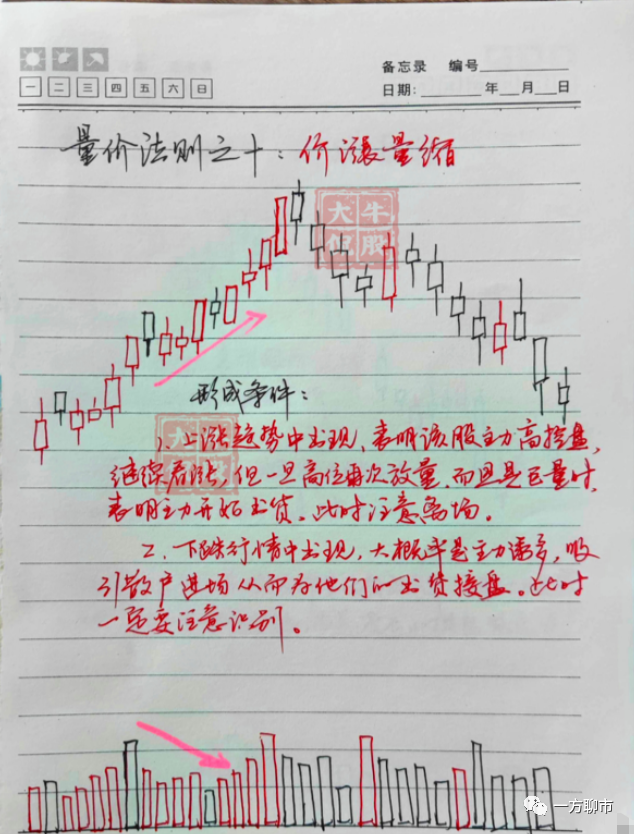 备忘录 编号
一 二 三 四 五 六 日
日期: 年 月 日
量价法则之十：价涨量缩
大牛
侃股
形成条件：
1、上涨趋势中出现，表明该股主力高控盘，
继续看涨，但一旦高位再次放量，而且是巨量时，
表明主力开始出货。此时注意离场。
2、下跌行情中出现，大概率是主力诱多，吸
引散户进场从而为他们的出货接盘。此时
一定要注意识别。
一方聊市